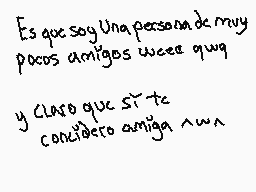 Es que soy Una persona de muy
pocos amigos weee qwq
y claro que si te
concidero amiga ^w^